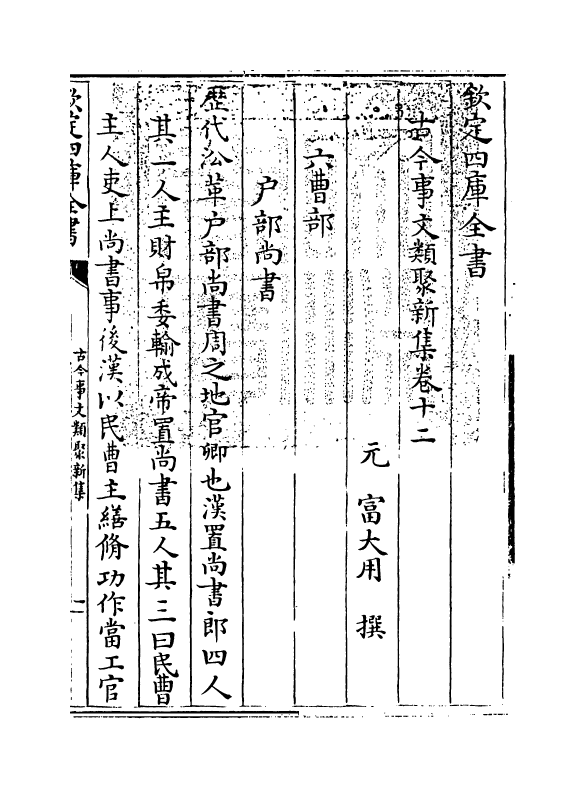 欽定四庫全書
古今事文類聚新集卷十二
元　富大用　撰
六曹部
户部尚書
歷代沿革户部尚書周之地官卿也漢置尚書郎四人
其一人主財帛委輸成帝置尚書五人其三曰民曹
主人吏上尚書事後漢以民曹主繕脩功作當工官
欽定四庫全書
古今事文類聚新集
一